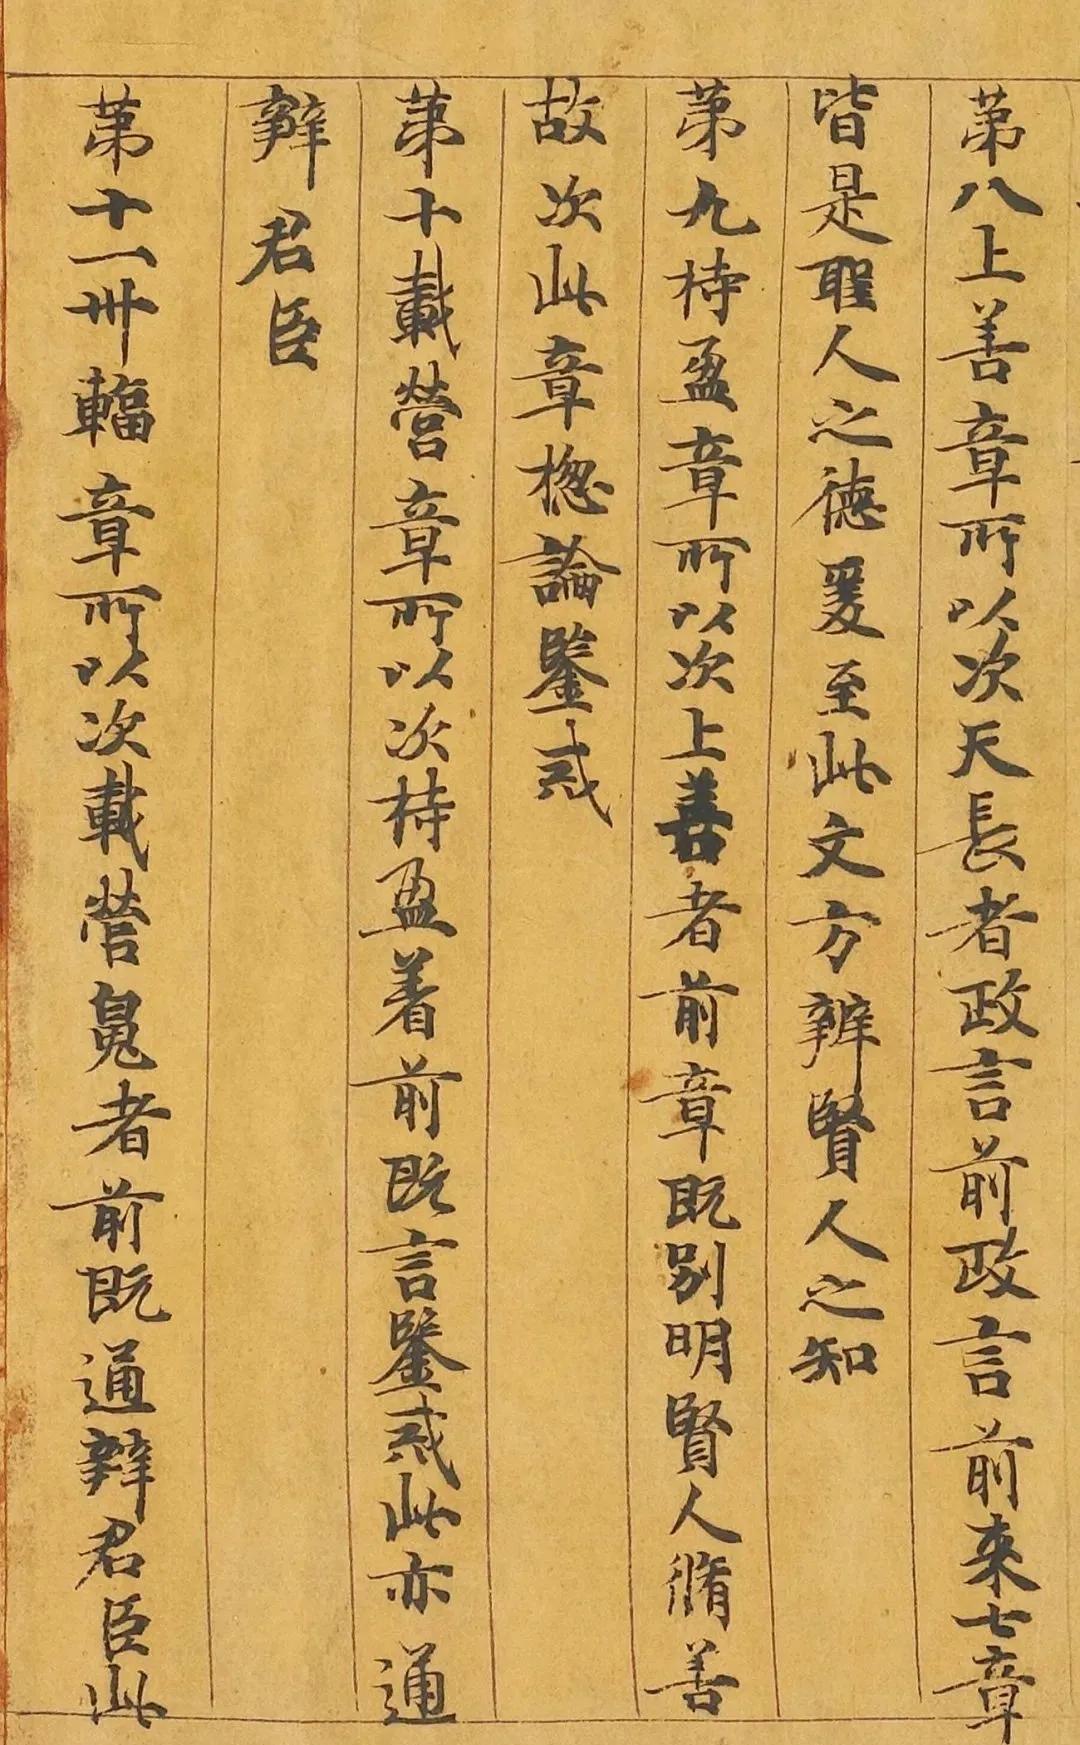 第八上善章所以次天長者政言前政言前来七章
皆是聖人之德爰至此文方辨賢人之知
第九持盈章所以次上善者前章既别明賢人脩善
故次此章揔論鑒戒
第十載營章所以次持盈着前既言鑒戒此亦通
辤君臣
第十一卅輻章所以次載營䰟者前既通辤君臣此